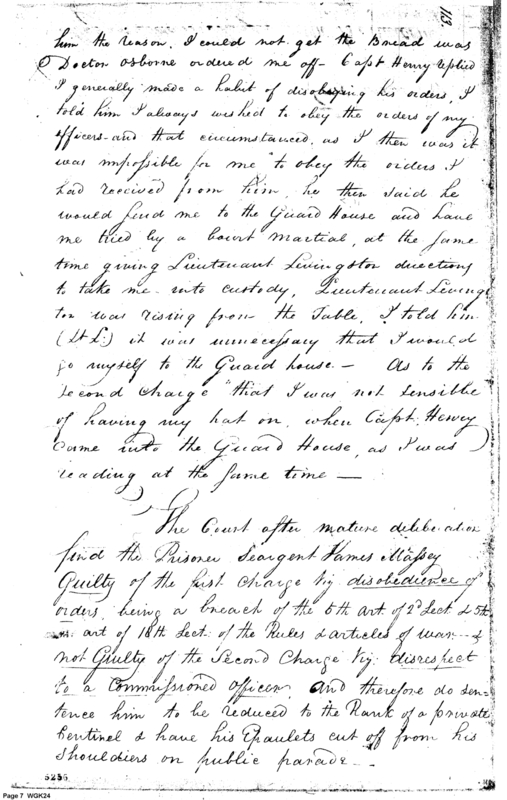 113.
him the reason. I could not get the Bread was
Doctor Osborne ordered me off - Capt Henry replied
I generally made a habit of disobeying his orders, I
told him I always wished to obey the orders of my
officers - and that circumstanced, as I then was it
was impossible for me to obey the orders I
had received from him, he then said he
would send me to the Guard House and have
me tried by a Court Martial, at the same
time giving Lieutenant Livingston directions
to take me into custody, Lieutenant Livings
ton was rising from the Table, I told him
(Lt L:) it was unnecessary that I would
go myself to the Guard house - As to the
Second Charge "that I was not sensible
of having my hat on, when Capt. Henry
Came into the Guard House, as I was
reading at the same time —
The Court after mature deliberation
find the Prisoner Seargent James Massey
Guilty of the first Charge Viz disobedience of
orders, being a breach of the 5th art of 2d Sect & 5th
art of 18th Sect. of the Rules & articles of war - &
not Guilty of the Second Charge Viz: disrespect
to a Commissioned officer, And therefore do sen=
tence him to be reduced to the Rank of a private
Centinel & have his Epaulets cut off from his
Shouldiers on public parade -
5256
Page 7 WGK24